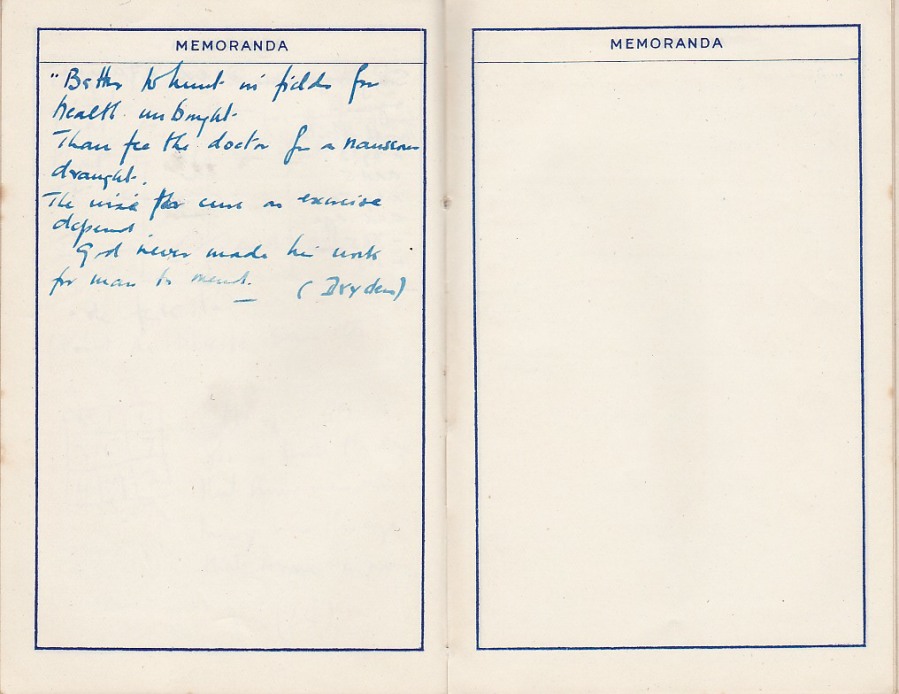 MEMORANDA
"Better to hunt in fields for
health unbought.
Than fee the doctor for a nauseous
draught.
The wise for cure on exercise
depend
God never made his work
for man to mend. (Dryden)
MEMORANDA